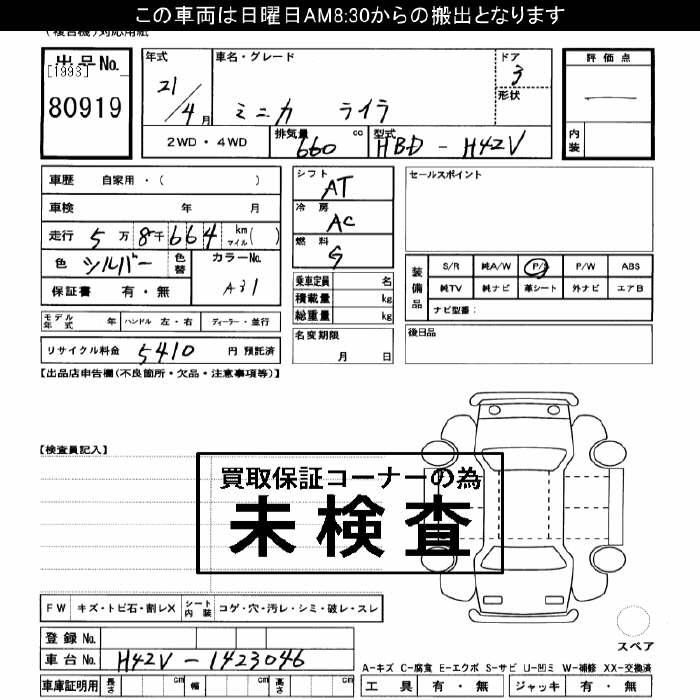 この車両は日曜日AM8:30からの搬出となります
(複合機)対応用紙
出品No.
[1993]
80919
年式
21/4月
車名・グレード
ミニカ ライラ
ドア
3
形状
評価点
内装
2WD・4WD
排気量
660 cc
型式
HBD-H42V
車歴 自家用・( )
車検 年 月
走行 5万8千664 km マイル( )
色 シルバー
色替
カラーNo.
A31
保証書 有・無
モデル年式 年
ハンドル 左・右
ディーラー・並行
リサイクル料金 5410 円 預託済
シフト
AT
冷房
AC
燃料
G
乗車定員 名
積載量 kg
総重量 kg
名変期限
月 日
セールスポイント
装備品
S/R 純A/W P/S P/W ABS
純TV 純ナビ 革シート 外ナビ エアB
ナビ型番:
後日品
【出品店申告欄(不良箇所・欠品・注意事項等)】
【検査員記入】
買取保証コーナーの為
未検査
FW キズ・トビ石・割レX
シート内装 コゲ・穴・汚レ・シミ・破レ・スレ
スペア
登録No.
車台No. H42V-1423046
車庫証明用 長さ cm 幅 cm 高さ cm
A-キズ C-腐食 E-エクボ S-サビ U-凹ミ W-補修 XX-交換済
工具 有・無 ジャッキ 有・無